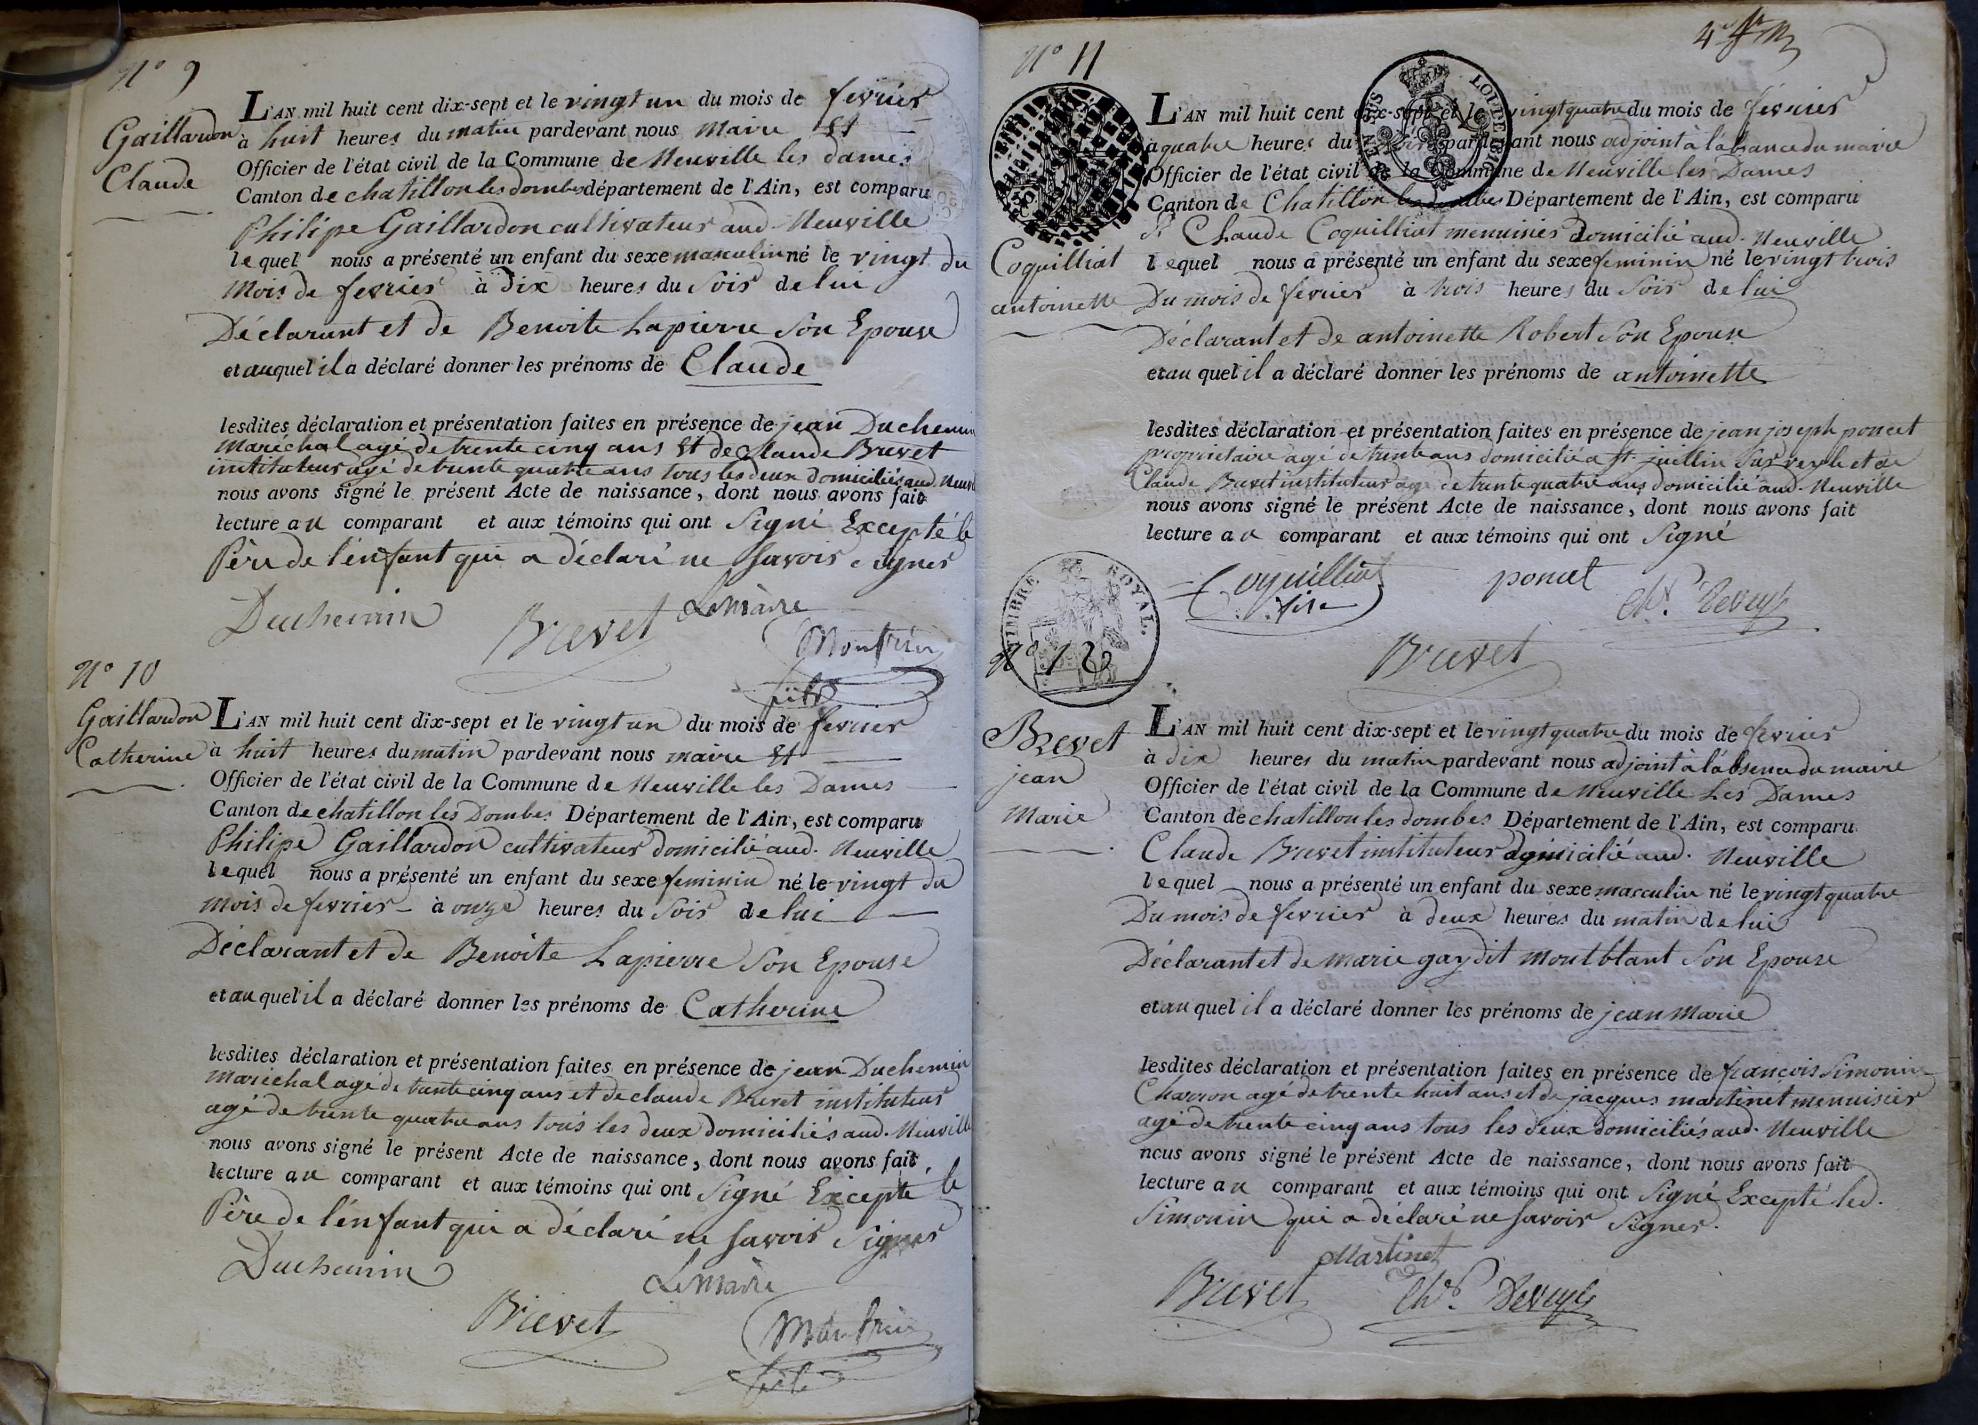 N° 9
Gaillardon
Claude
L'AN mil huit cent dix-sept et le vingt un du mois de fevrier
à huit heures du matin pardevant nous maire Et
Officier de l'état civil de la Commune de Neuville les Dames
Canton de chatillon les dombes département de l'Ain, est comparu
Philipe Gaillardon cultivateur aud. Neuville
lequel nous a présenté un enfant du sexe masculin né le vingt du
Mois de fevrier à Dix heures du Soir de lui
Déclarant et de Benoite Lapierre Son Epouse
et auquel il a déclaré donner les prénoms de Claude
lesdites déclaration et présentation faites en présence de jean Duchemin
Maréchal agé de trente cinq ans Et de Claude Brevet
instituteur agé de trente quatre ans tous les deux domiciliés aud. Neuville
nous avons signé le présent Acte de naissance, dont nous avons fait
lecture au comparant et aux témoins qui ont Signé Excepté le
Père de l'enfant qui a déclaré ne Savoir signer
Duchemin Brevet Lemaire
Montrin
fils
N° 10
Gaillardon
Catherine
L'AN mil huit cent dix-sept et le vingt un du mois de fevrier
à huit heures du matin pardevant nous maire Et
Officier de l'état civil de la Commune de Neuville les Dames
Canton de chatillon les Dombes Département de l'Ain, est comparu
Philipe Gaillardon cultivateur domicilié aud. Neuville
lequel nous a présenté un enfant du sexe feminin né le vingt du
mois de fevrier à onze heures du Soir de lui
Déclarant et de Benoite Lapierre Son Epouse
et au quel il a déclaré donner les prénoms de Catherine
lesdites déclaration et présentation faites en présence de jean Duchemin
Maréchal agé de trente cinq ans et de claude Brevet instituteur
agé de trente quatre ans tous les deux domiciliés aud. Neuville
nous avons signé le présent Acte de naissance, dont nous avons fait
lecture au comparant et aux témoins qui ont Signé Excepté le
Père de l'enfant qui a déclaré ne Savoir Signer
Duchemin Lemaire
Brevet Montrin
fils
N° 11
TIMBRE ROYAL.
Coquilliat
antoinette
L'AN mil huit cent dix-sept et le vingt quatre du mois de fevrier
à quatre heures du soir pardevant nous adjoint à l'absance du maire
Officier de l'état civil de la Commune de Neuville les Dames
Canton de Chatillon les dombes Département de l'Ain, est comparu
Sr Claude Coquilliat menuisier domicilié aud. Neuville
lequel nous a présenté un enfant du sexe feminin né le vingt trois
Du mois de fevrier à trois heures du Soir de lui
Déclarant et de antoinette Robert Son Epouse
et au quel il a déclaré donner les prénoms de antoinette
lesdites déclaration et présentation faites en présence de jean joseph poncet
proprietaire agé de trente ans domicilié a St. juellin Sur veyle et de
Claude Brevet instituteur age de trente quatre ans domicilié aud. Neuville
nous avons signé le présent Acte de naissance, dont nous avons fait
lecture au comparant et aux témoins qui ont Signé
Coquilliat poncet Chr. Deveyle
Brevet
N° 12
Brevet
jean
Marie
L'AN mil huit cent dix-sept et le vingt quatre du mois de fevrier
à dix heures du matin pardevant nous adjoint à l'absence du maire
Officier de l'état civil de la Commune de Neuville Les Dames
Canton de chatillon les dombes Département de l'Ain, est comparu
Claude Brevet instituteur domicilié aud. Neuville
lequel nous a présenté un enfant du sexe masculin né le vingt quatre
Du mois de fevrier à deux heures du matin de lui
Déclarant et de marie gay dit Montblant Son Epouse
et au quel il a déclaré donner les prénoms de jean Marie
lesdites déclaration et présentation faites en présence de françois Simonin
Charron agé de trente huit ans et de jacques martinet menuisier
agé de trente cinq ans tous les deux domiciliés aud. Neuville
nous avons signé le présent Acte de naissance, dont nous avons fait
lecture au comparant et aux témoins qui ont Signé Excepté led.
Simonin qui a déclaré ne Savoir Signer.
Martinet
Brevet Chr. Deveyle